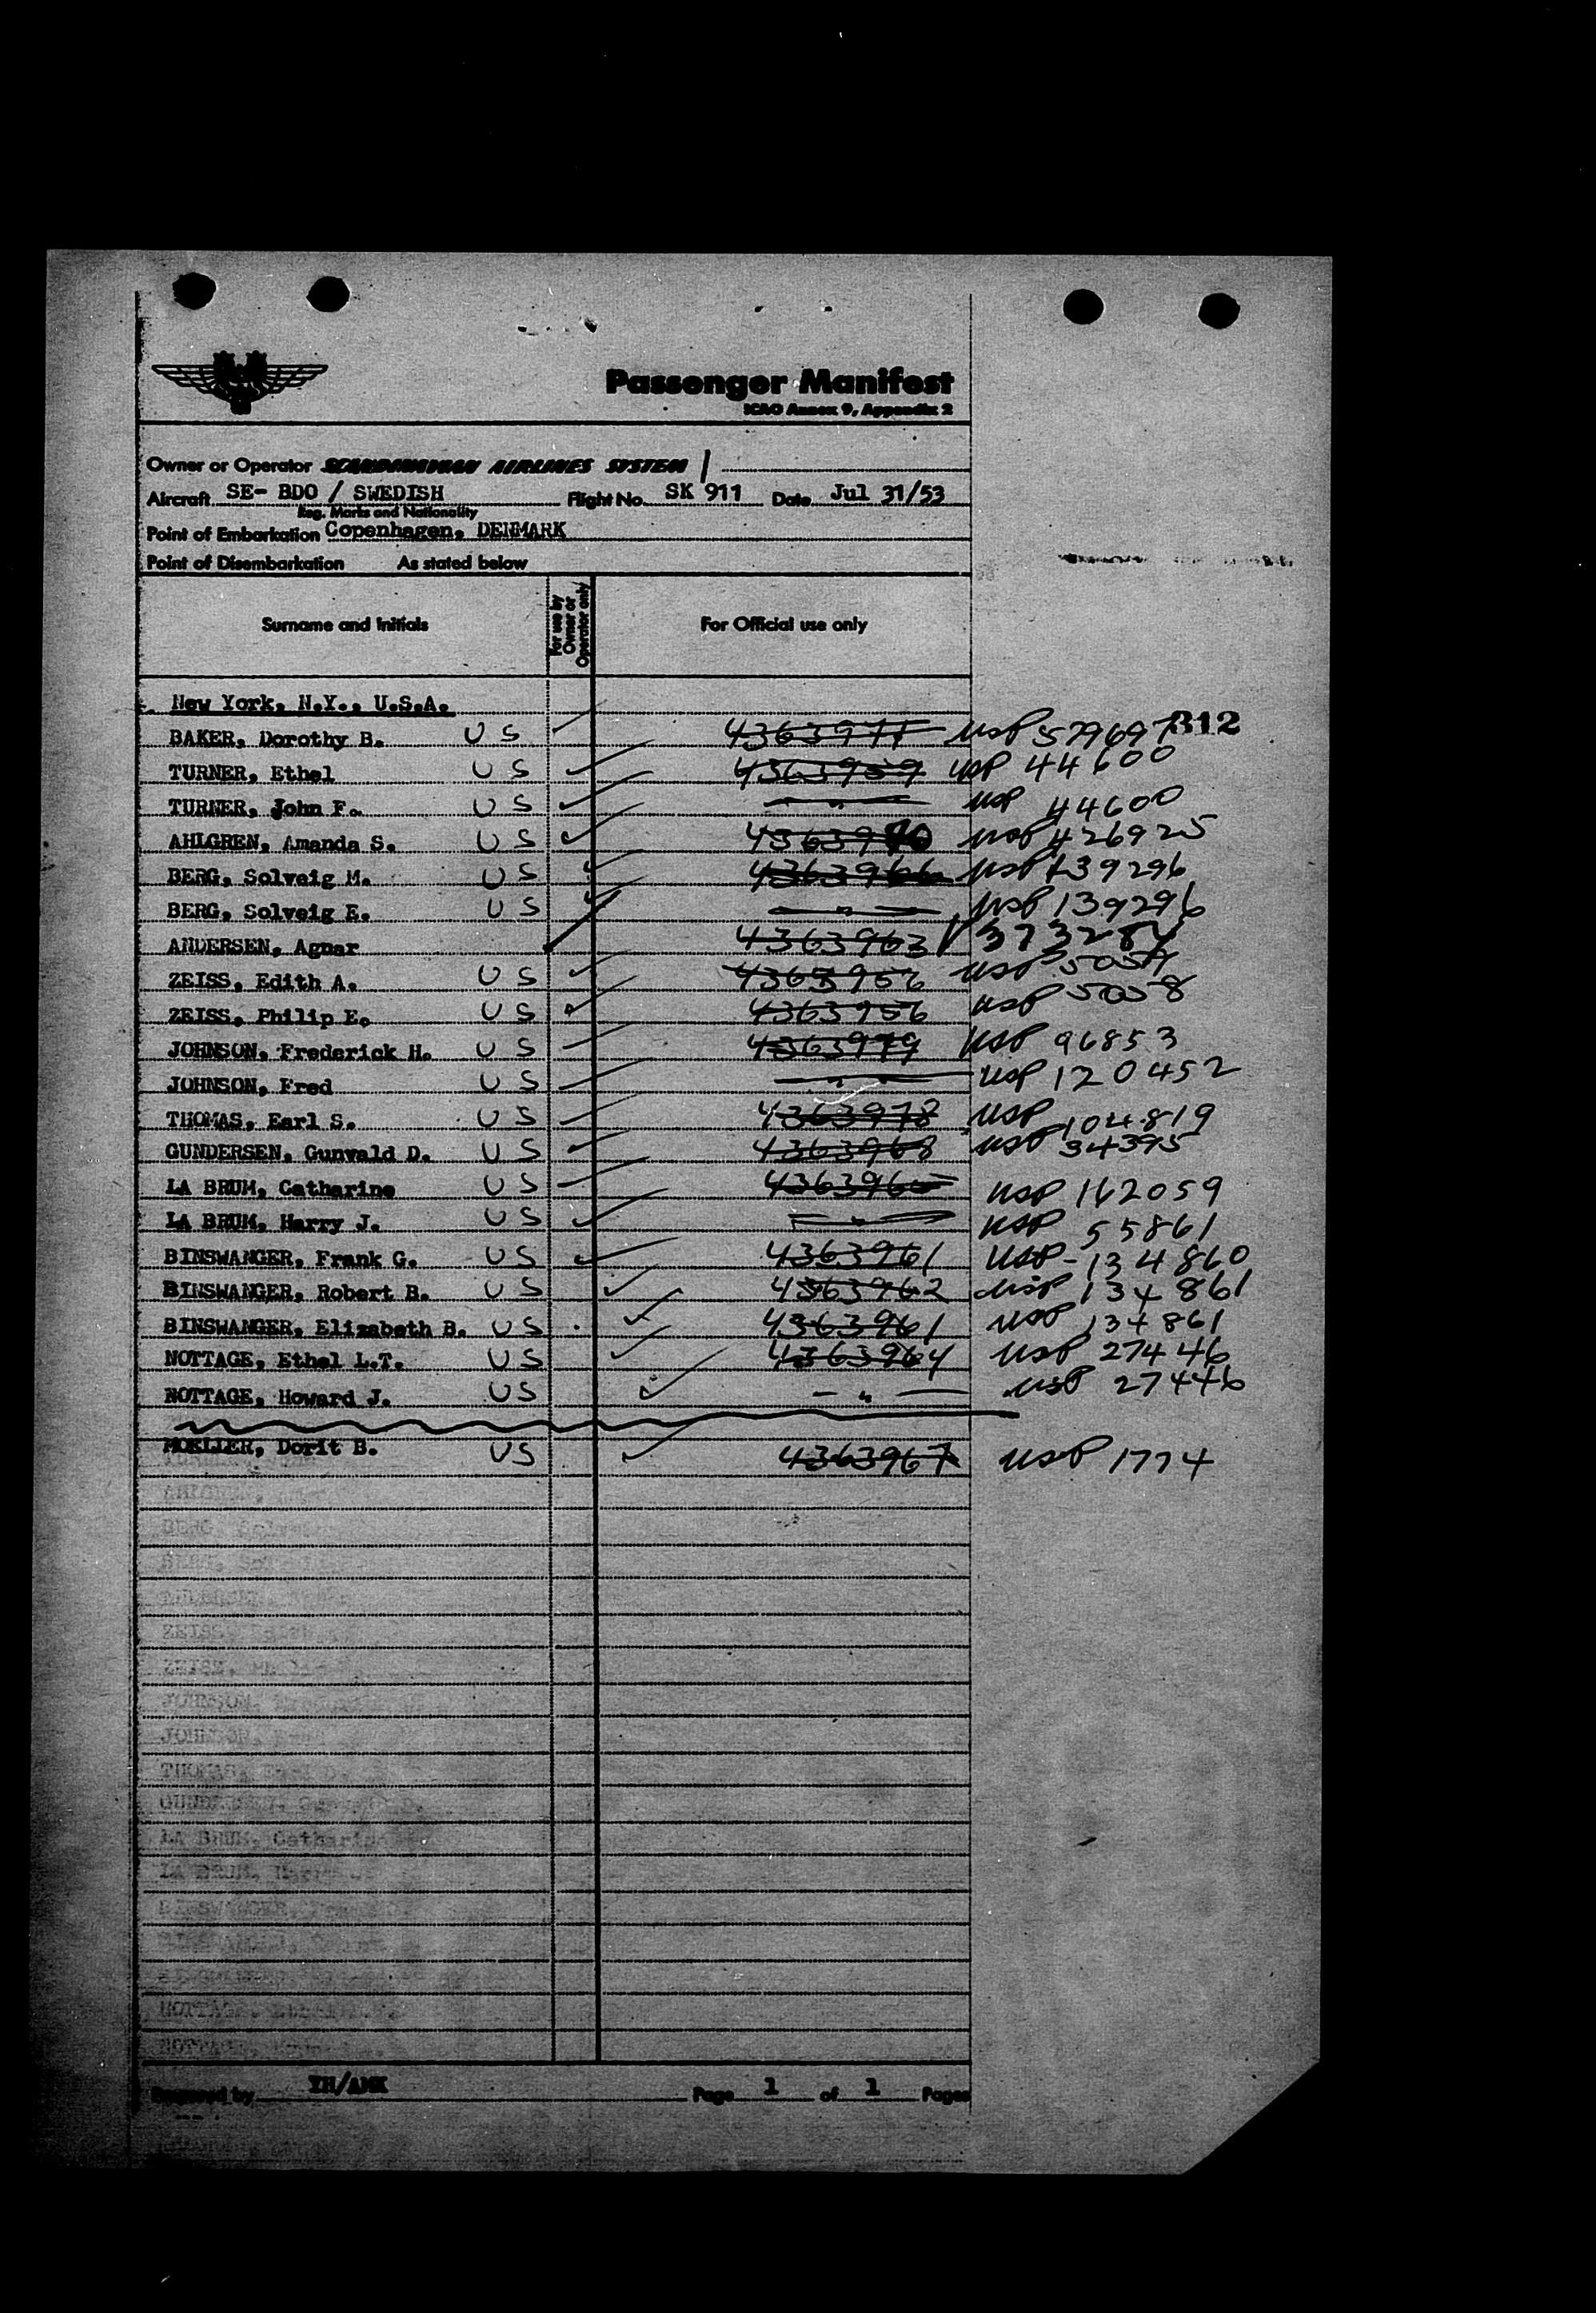 Passenger Manifest
ICAO Annex 9, Appendix 2
Owner or Operator SCANDINAVIAN AIRLINES SYSTEM
Aircraft SE- BDO / SWEDISH Flight No. SK 911 Date Jul 31/53
Reg. Marks and Nationality
Point of Embarkation Copenhagen, DENMARK
Point of Disembarkation As stated below
Surname and Initials For use by Owner or Operator only For Official use only
New York, N.Y., U.S.A.
312
BAKER, Dorothy B. US 4363977 USP 579697
TURNER, Ethel US 4363959 USP 44600
TURNER, John F. US - " - USP 44600
AHLGREN, Amanda S. US USP 426925
BERG, Solveig M. US 4363966 USP 139296
BERG, Solveig E. US - " - USP 139296
ANDERSEN, Agnar 4363963 V
ZEISS, Edith A. US 4363956 USP
ZEISS, Philip E. US 4363956 USP 5058
JOHNSON, Frederick H. US 4363979 USP 96853
JOHNSON, Fred US - " - USP 120452
THOMAS, Earl S. US 4363978 USP 104819
GUNDERSEN, Gunvald D. US 4363968 USP 34395
LA BRUM, Catharine US USP 162059
LA BRUM, Harry J. US - " - USP 55861
BINSWANGER, Frank G. US 4363961 USP-134860
BINSWANGER, Robert B. US 4363962 USP 134861
BINSWANGER, Elizabeth B. US 4363961 USP 134861
NOTTAGE, Ethel L.T. US 4363964 USP 27446
NOTTAGE, Howard J. US - " - USP 27446
MOELLER, Dorit B. US 4363967 USP 1774
Prepared by YH/AMK Page 1 of 1 Pages